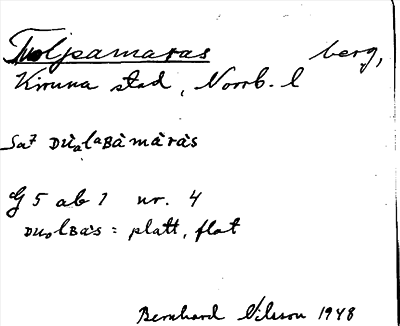 Tuolpamaras berg,
Kiruna stad, Norrb. l
Sa7 Dùₐlₐʙàmàràs
G 5 ab 1 nr. 4
Duₒlʙàs = platt, flat
Bernhard Nilsson 1948